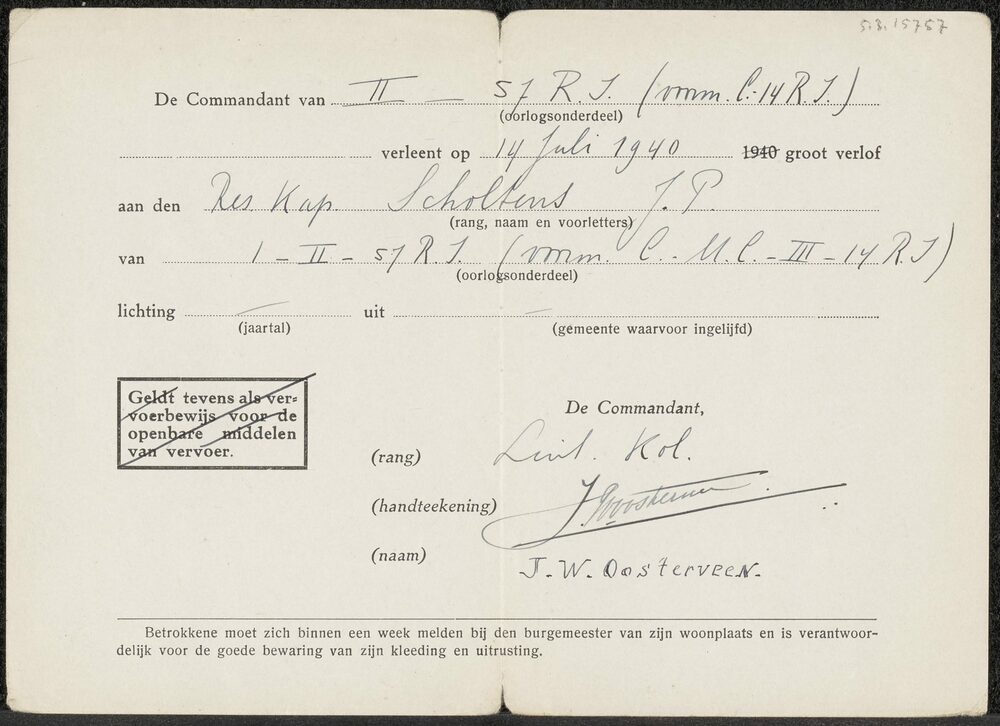 5.3.15757
De Commandant van II — 57 R.I. (vmm. C.-14 R.I.)
(oorlogsonderdeel)
verleent op 14 Juli 1940 1940 groot verlof
aan den Res Kap. Scholtens J.P.
(rang, naam en voorletters)
van 1 - II - 57 R.I. (vmm. C.- M.C. - III - 14 R.I)
(oorlogsonderdeel)
lichting — uit —
(jaartal) (gemeente waarvoor ingelijfd)
Geldt tevens als ver-
voerbewijs voor de
openbare middelen
van vervoer.
De Commandant,
(rang) Luit. Kol.
(handteekening) J.W. Oosterveen
(naam) J.W. Oosterveen.
Betrokkene moet zich binnen een week melden bij den burgemeester van zijn woonplaats en is verantwoor-
delijk voor de goede bewaring van zijn kleeding en uitrusting.